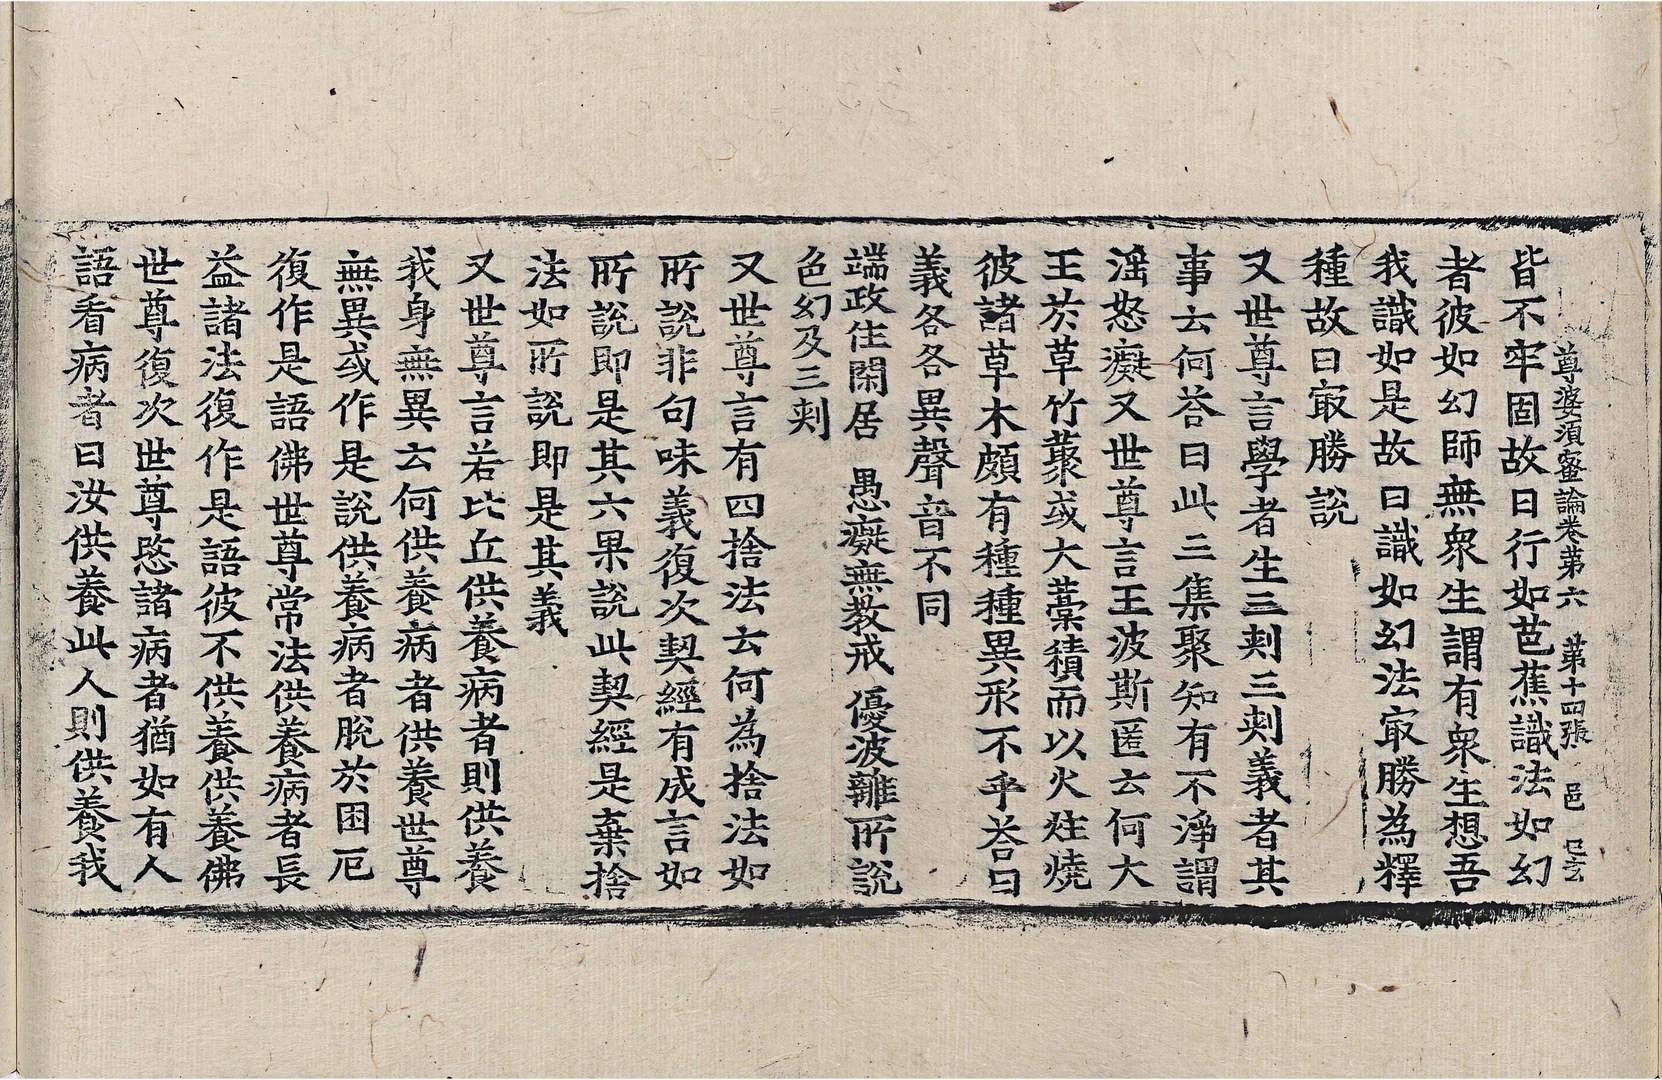 尊婆須蜜論卷第六 第十四張 邑 巳玄
皆不牢固故曰行如芭蕉識法如幻
者彼如幻師無衆生謂有衆生想吾
我識如是故曰識如幻法㝡勝為釋
種故曰㝡勝說
又世尊言學者生三剌三剌義者其
事云何荅曰此三集聚知有不淨謂
淫怒癡又世尊言王波斯匿云何大
王於草竹藂或大藁積而以火炷燒
彼諸草木頗有種種異形不乎荅曰
義各各異聲音不同
端政住閑居 愚癡無教戒 優波離所說
色幻及三剌
又世尊言有四捨法云何為捨法如
所說非句味義復次契經有成言如
所說即是其六果說此契經是棄捨
法如所說即是其義
又世尊言若比丘供養病者則供養
我身無異云何供養病者供養世尊
無異或作是說供養病者脫於困厄
復作是語佛世尊常法供養病者長
益諸法復作是語彼不供養供養佛
世尊復次世尊愍諸病者猶如有人
語看病者曰汝供養此人則供養我